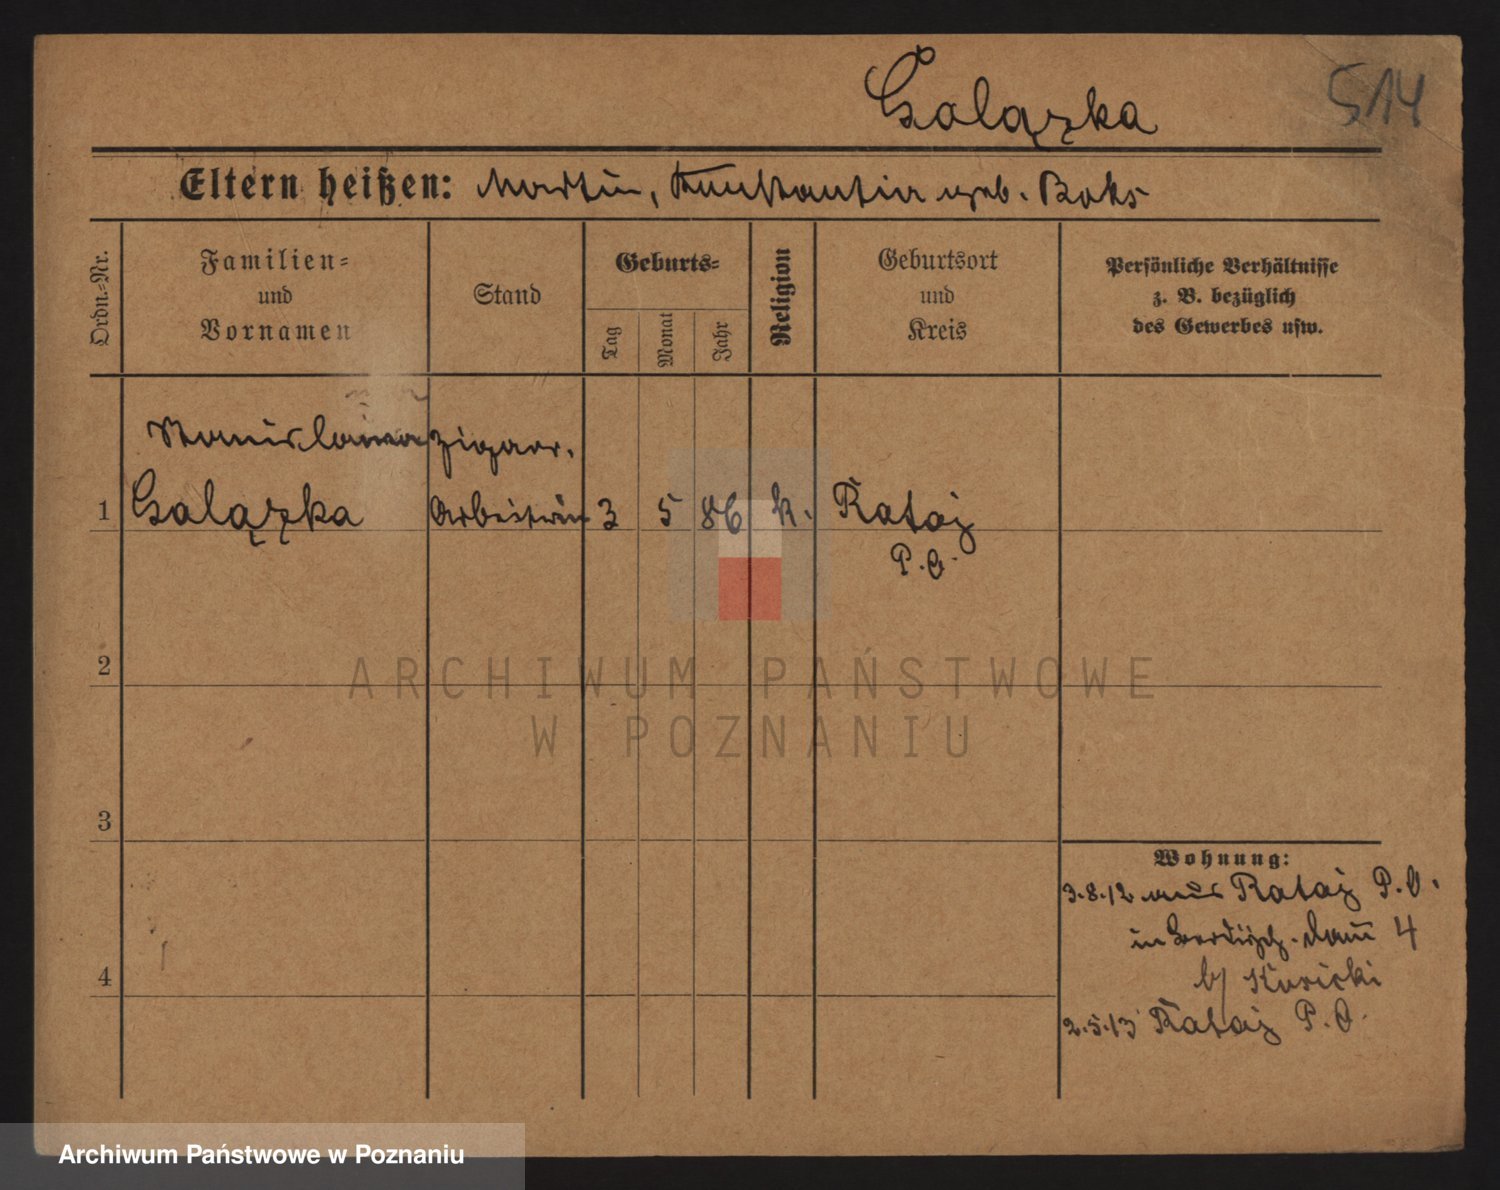 Galązka
514
Eltern heißen: Martin, Konstantia geb. Boks
Ordn.-Nr.
Familien-
und
Vornamen
Stand
Geburts-
Tag
Monat
Jahr
Religion
Geburtsort
und
Kreis
Persönliche Verhältnisse
z. B. bezüglich
des Gewerbes usw.
Stanislawa Zigarr.
1 Galązka Arbeiterin 3 5 86 k. Rataj
P. O.
2
ARCHIWUM PAŃSTWOWE
W POZNANIU
3
Wohnung:
3.8.12 aus Rataj P. O.
in damm 4
4
b/ Kosicki
2.5.13 Rataj P. O.
Archiwum Państwowe w Poznaniu